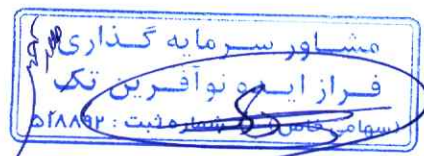 مشاور سرمایه گذاری
فراز ایده نوآفرین تک
(سهامی خاص) شماره ثبت : ۵۲۸۸۹۲